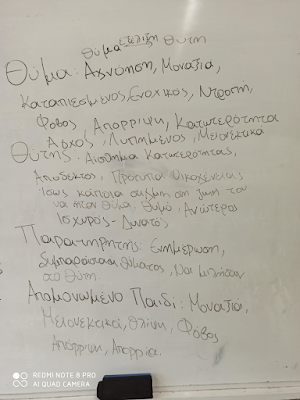 θύμα εξέλιξη θύτη
Θύμα: Αχνώηση, Μοναξια,
Καταπιεσμένος, Ενοχικός, Ντροπη,
Φοβος, Απορριψη, Κατωτερότητα
Αρχος, Λυπημενος, Μειονεκτικα
Θύτης: Αίσθημα Κατωτερότητας,
Αποδεκτος, Πρότυπα Οικογένειας
Ισως κάποια στιγμη στη ζωη του
να ήταν θύμα, Θυμό, Ανώτερος
Ισχυρός - Δυνατός
Παρατηρητης: Ενημέρωση,
Συμπαράσταση θύματος, Να μιλήσουν
στο Θύτη
Απομονωμενο Παιδί: Μοναξια,
Μειονεκτικα, Θλίψη, Φοβος
Απορριψη, Απορρια.
REDMI NOTE 8 PRO
AI QUAD CAMERA